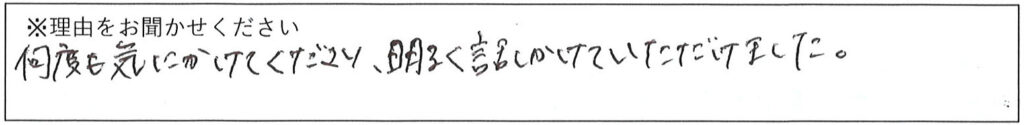 ※理由をお聞かせください
何度も気にかけてくださり、明るく話しかけていただけました。